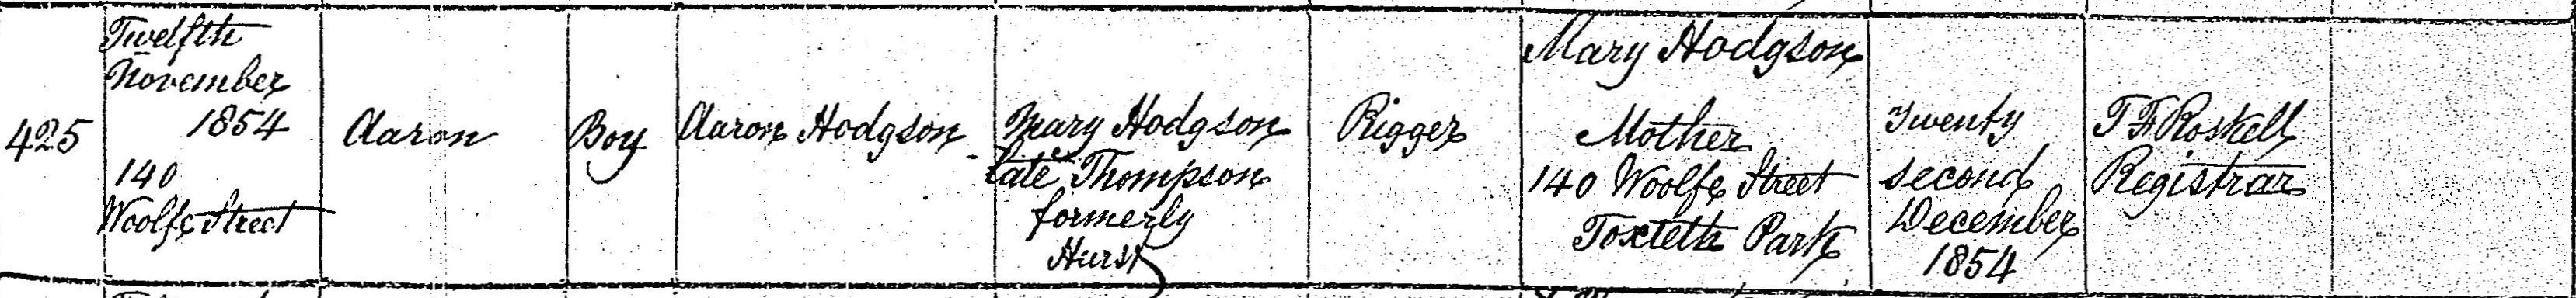 425
Twelfth
November
1854
140
Woolfe Street
Aaron
Boy
Aaron Hodgson
Mary Hodgson
late Thompson
formerly
Hurst
Rigger
Mary Hodgson
Mother
140 Woolfe Street
Toxteth Park
Twenty
second
December
1854
T F Roskell
Registrar